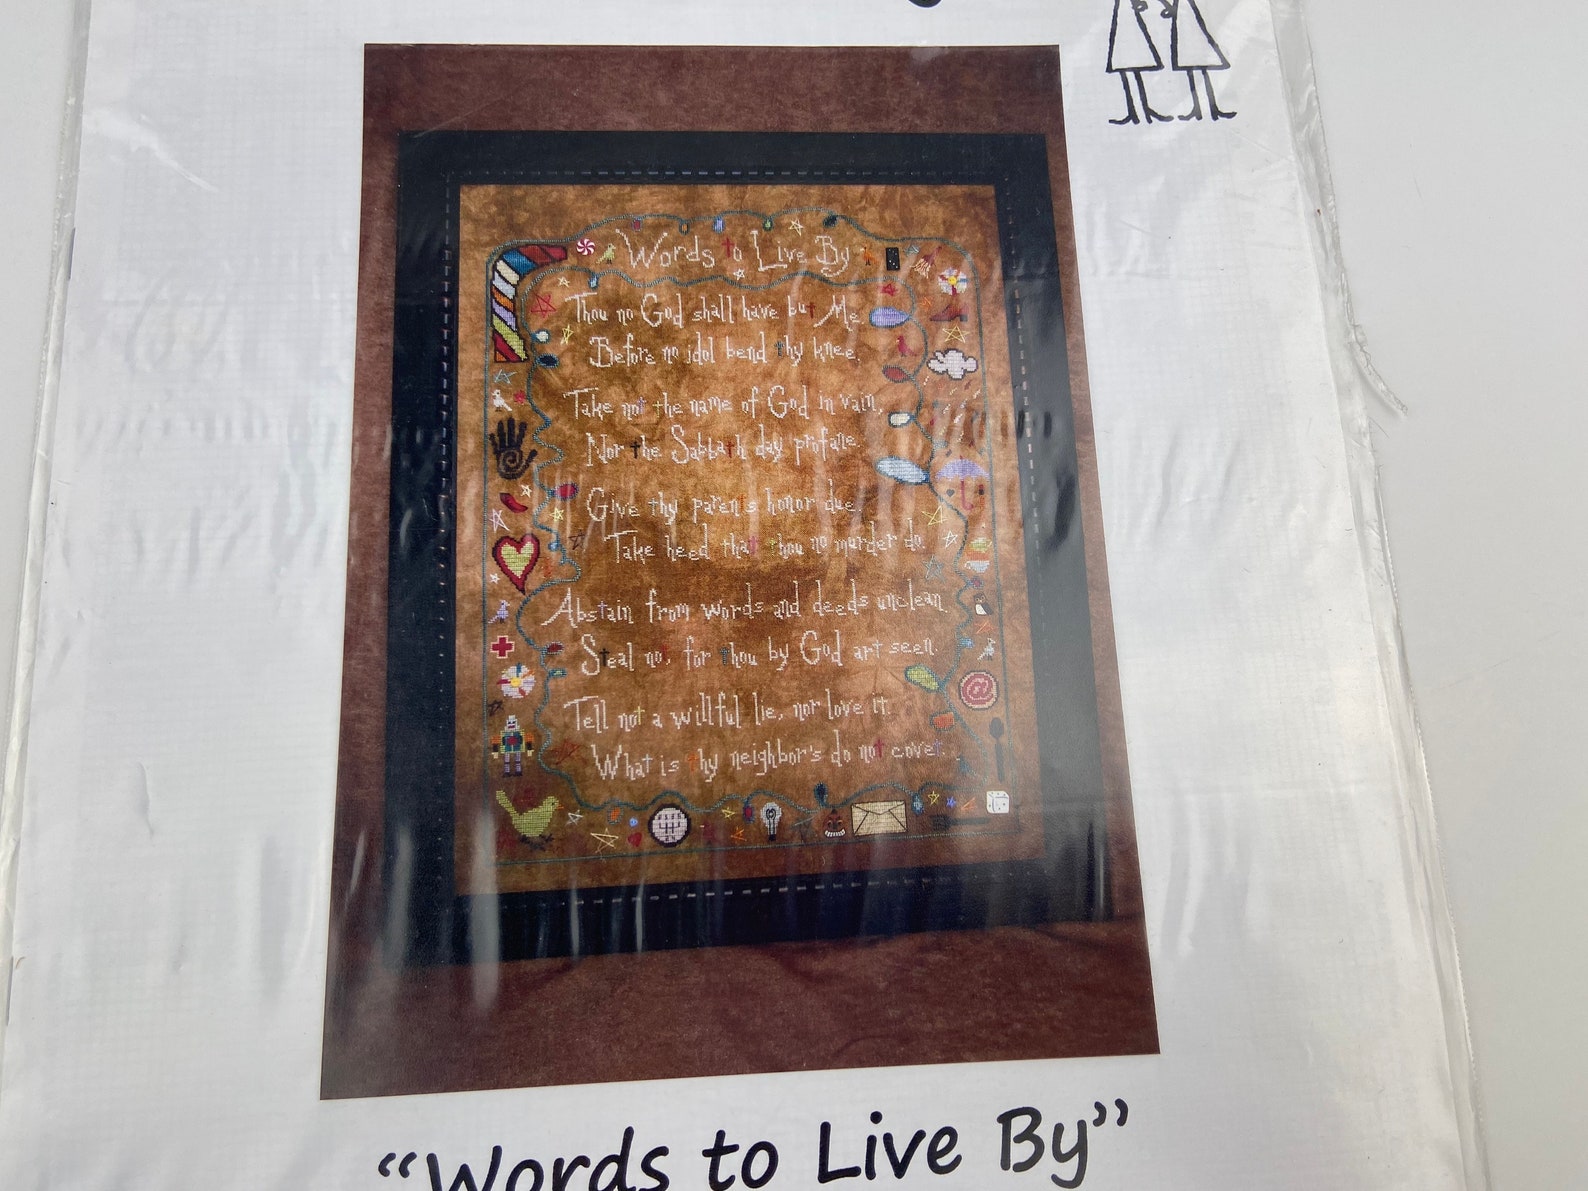 Words to Live By
Thou no God shall have but Me
Before no idol bend thy knee.
Take not the name of God in vain,
Nor the Sabbath day profane.
Give thy parents honor due.
Take heed that thou no murder do.
Abstain from words and deeds unclean.
Steal not, for thou by God art seen.
Tell not a willful lie, nor love it.
What is thy neighbor's do not covet.
@
“Words to Live By”